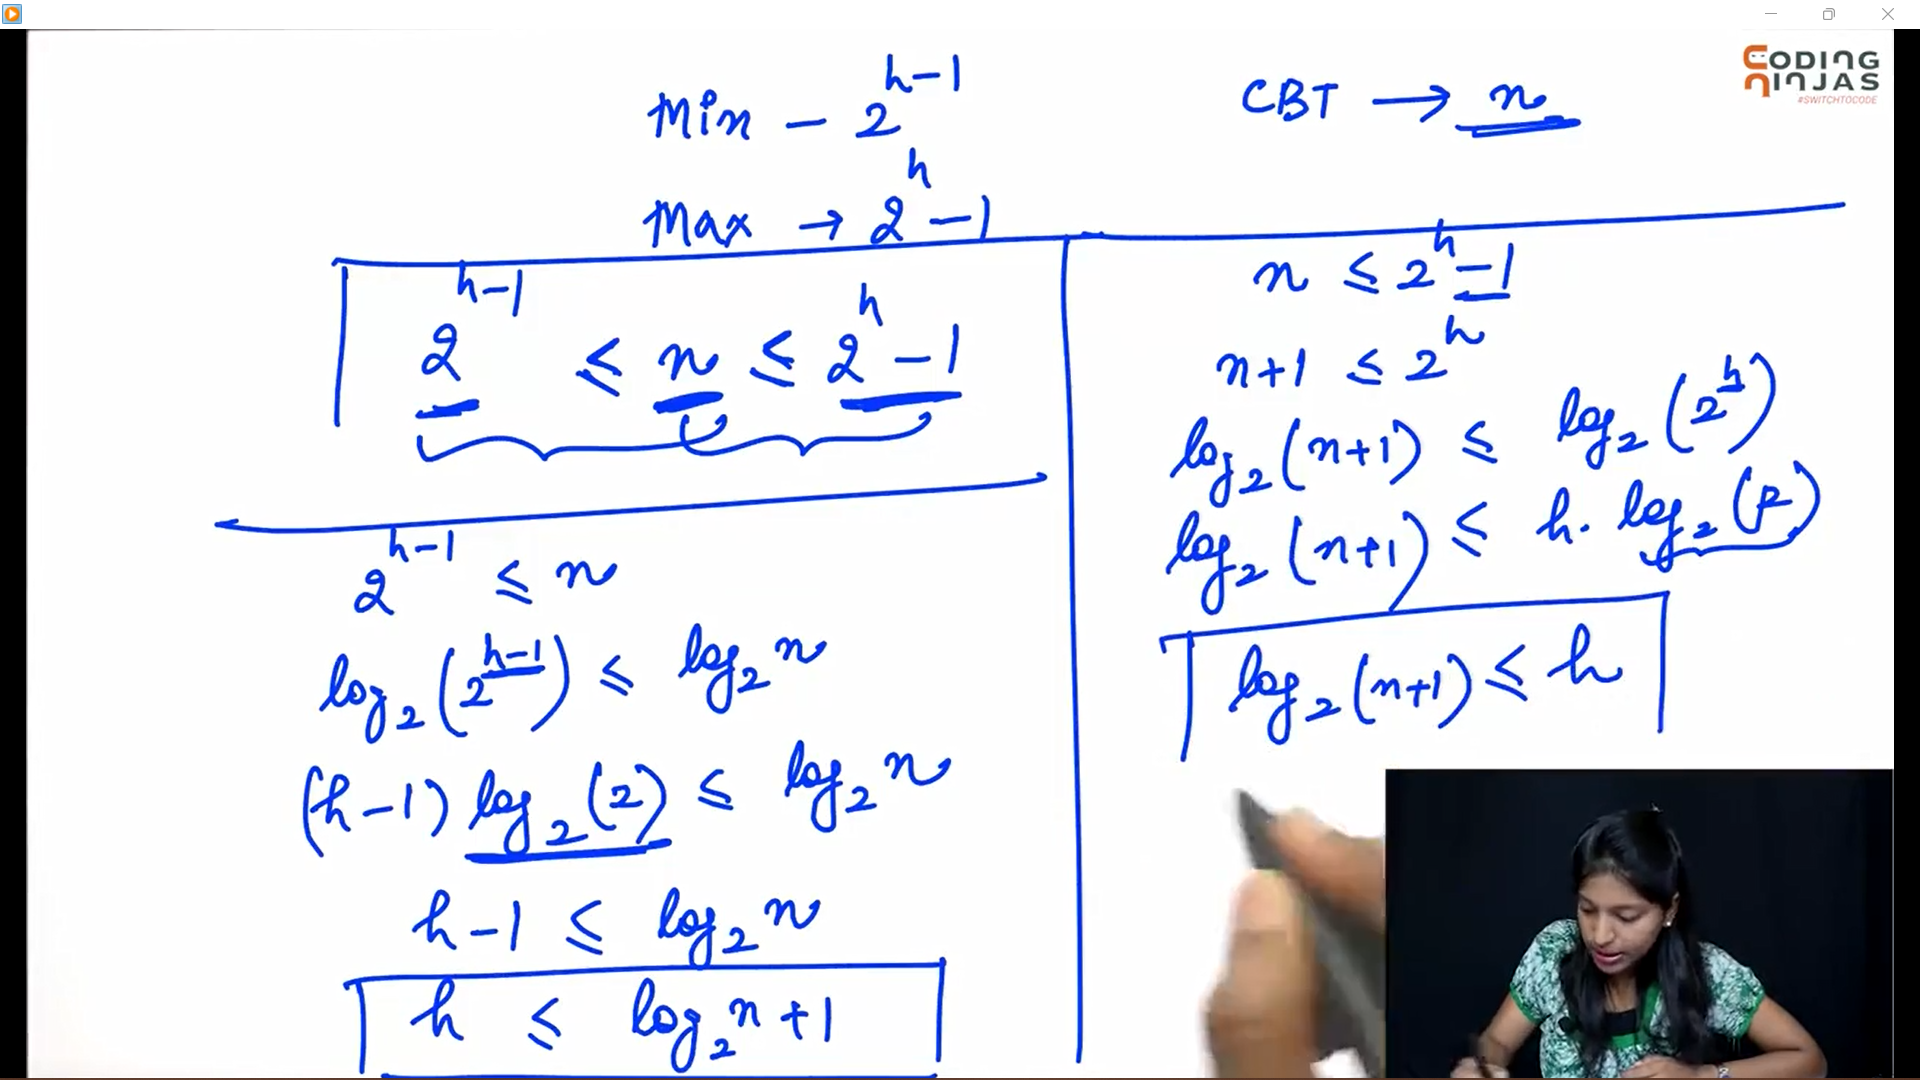 CODING
NINJAS
#SWITCHTOCODE
Min - 2^(h-1)
Max → 2^h - 1
CBT → n
2^(h-1) ≤ n ≤ 2^h - 1
2^(h-1) ≤ n
log₂(2^(h-1)) ≤ log₂ n
(h-1) log₂(2) ≤ log₂ n
h-1 ≤ log₂ n
h ≤ log₂ n + 1
n ≤ 2^h - 1
n+1 ≤ 2^h
log₂(n+1) ≤ log₂(2^h)
log₂(n+1) ≤ h. log₂(2)
log₂(n+1) ≤ h